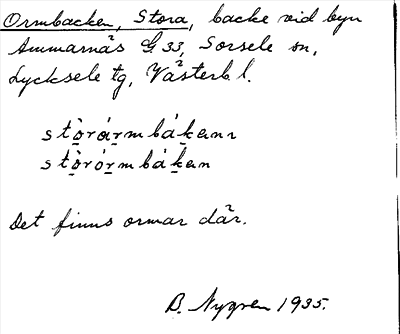 Ormbacken, Stora, backe vid byn
Ammarnäs G 33, Sorsele sn,
Lycksele tg, Västerb l.
stò̱ráṟmbáḵenn
stò̱róṟmbáḵen
Det finns ormar där.
B. Nygren 1935.